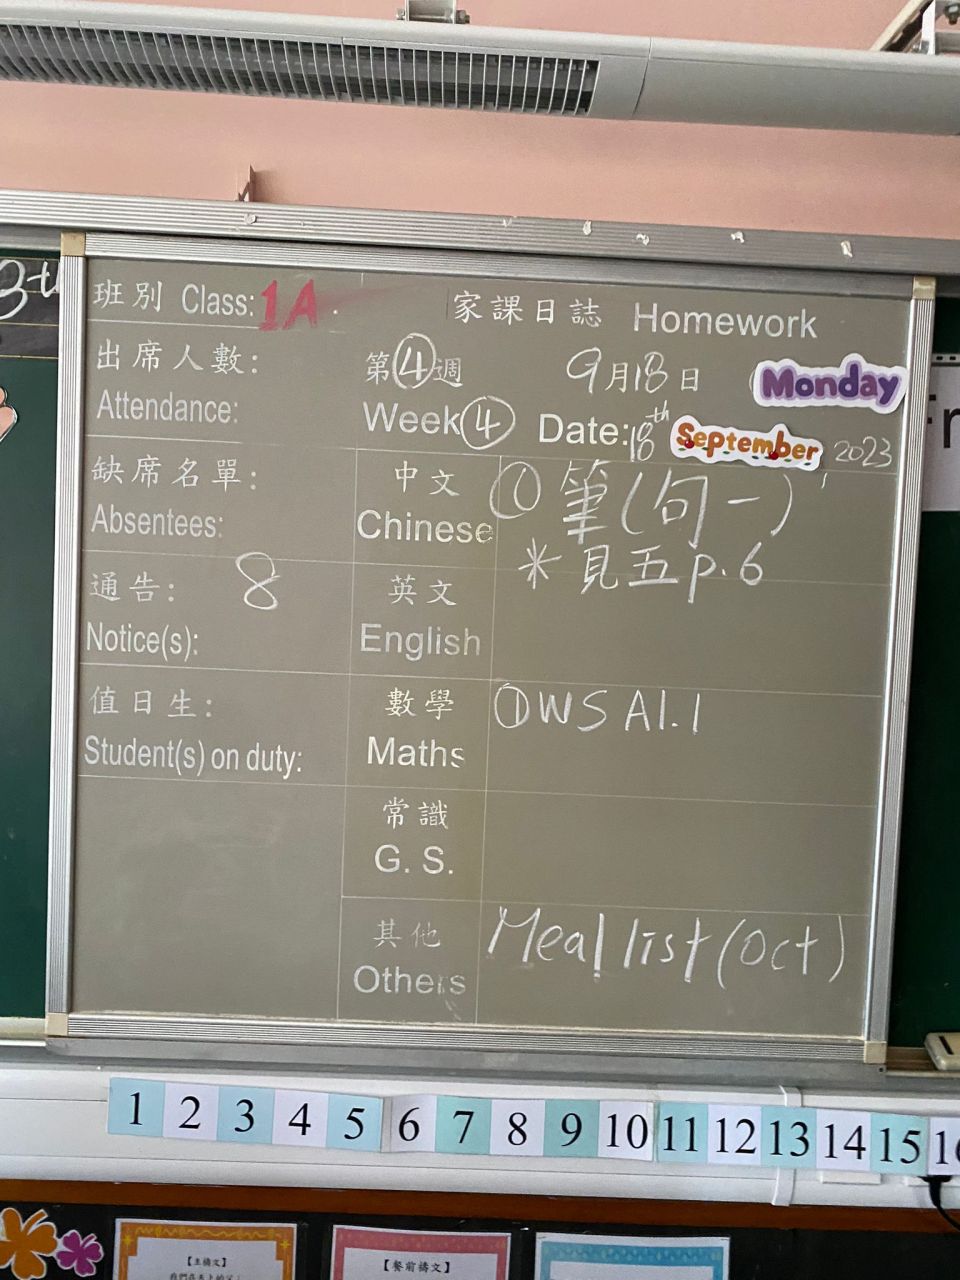 班別 Class: 1A.
家課日誌 Homework
出席人數:
Attendance:
第④週 9月18日 Monday
Week④ Date: 18th September 2023
缺席名單:
Absentees:
中文
Chinese
① 筆(句一)
*見五p.6
通告: 8
Notice(s):
英文
English
值日生:
Student(s) on duty:
數學
Maths
① WS A1.1
常識
G. S.
其他
Others
Meal list (Oct)
1 2 3 4 5 6 7 8 9 10 11 12 13 14 15
【主禱文】
【餐前禱文】